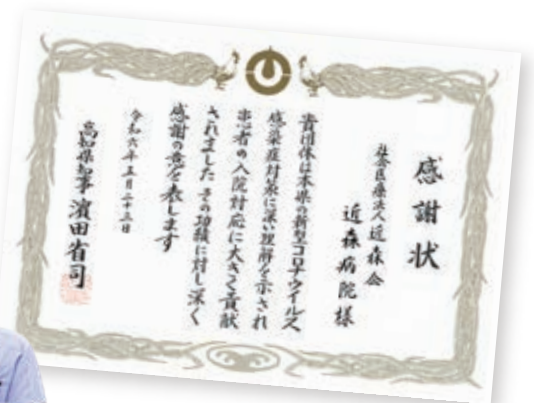 感謝状
社会医療法人近森会
近森病院様
貴団体は本県の新型コロナウイルス
感染症対策に深い理解を示され
患者の入院対応に大きく貢献
されましたその功績に対し深く
感謝の意を表します
令和六年五月二十三日
高知県知事 濵田省司